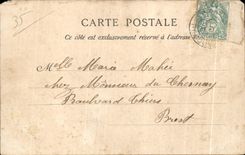 35
CARTE POSTALE
Ce côté est exclusivement réservé à l'adresse
Melle Maria Mahée
chez Monsieur du Chesnay
Boulevard Thiers
Brest